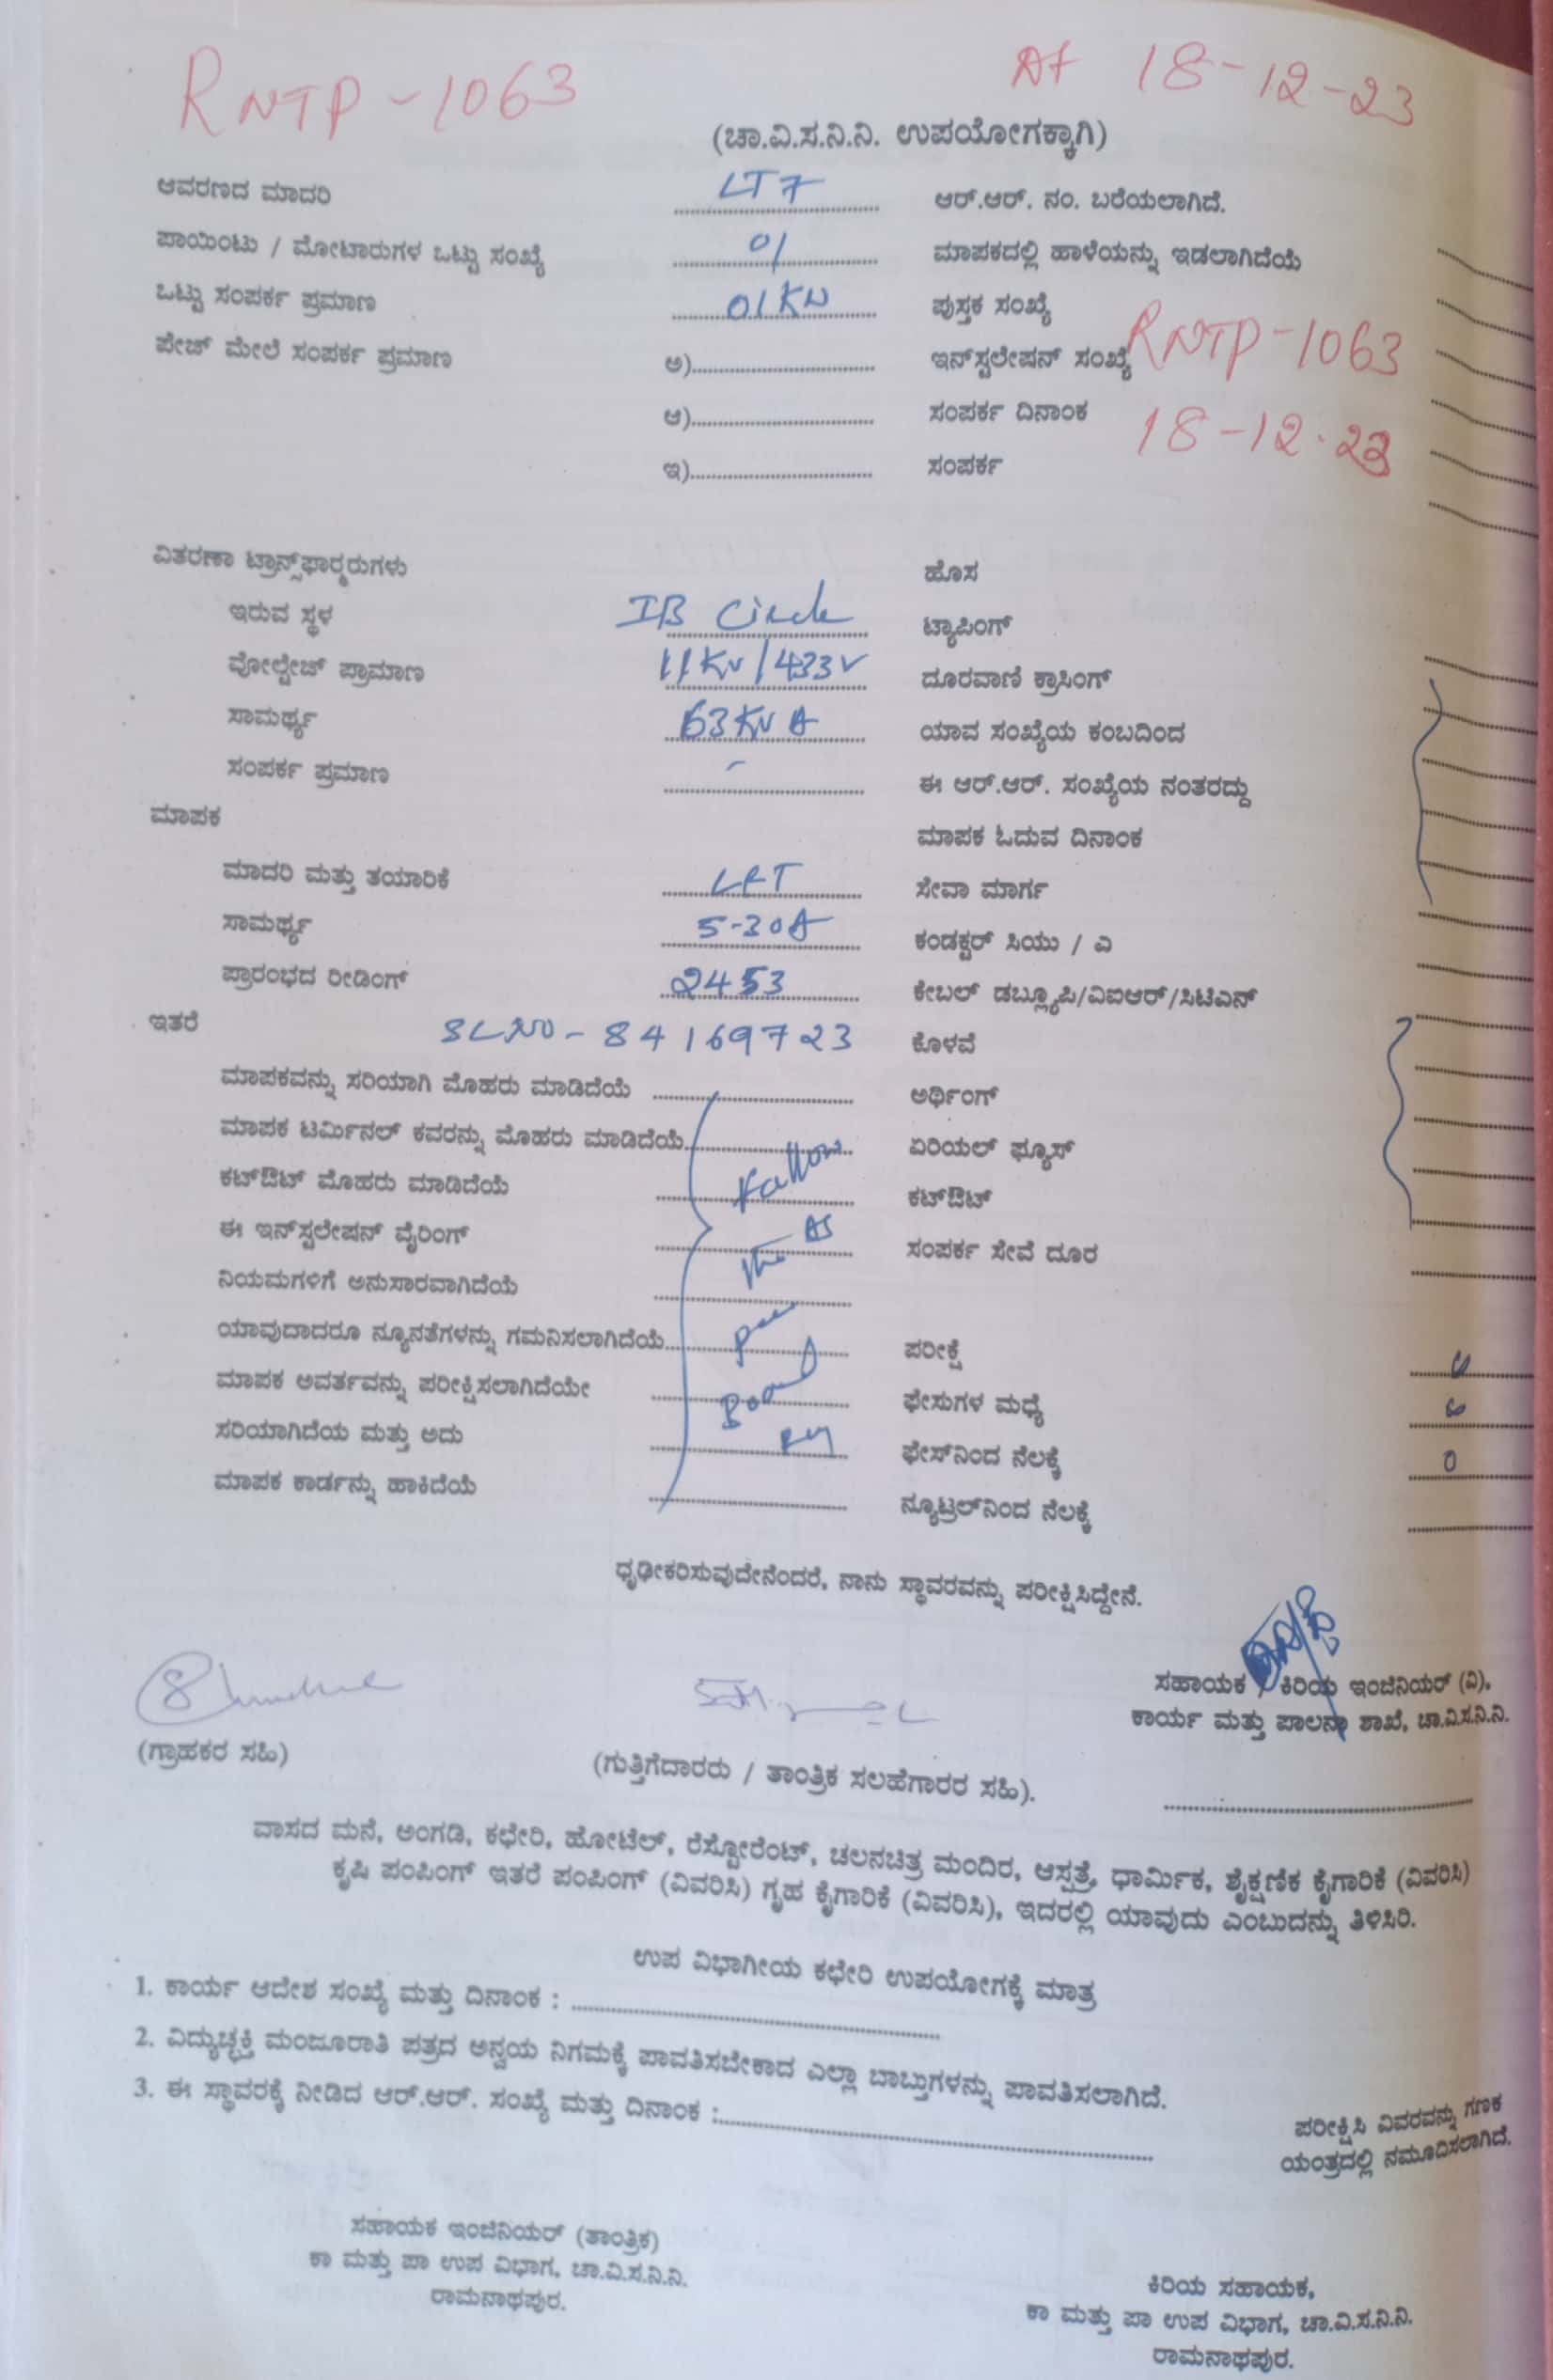 RNTP-1063
At 18-12-23
(ಚಾ.ವಿ.ಸ.ನಿ.ನಿ. ಉಪಯೋಗಕ್ಕಾಗಿ)
ಆವರಣದ ಮಾದರಿ LT7 ಆರ್.ಆರ್. ನಂ. ಬರೆಯಲಾಗಿದೆ.
ಪಾಯಿಂಟು / ಮೋಟಾರುಗಳ ಒಟ್ಟು ಸಂಖ್ಯೆ 01 ಮಾಪಕದಲ್ಲಿ ಹಾಳೆಯನ್ನು ಇಡಲಾಗಿದೆಯೆ
ಒಟ್ಟು ಸಂಪರ್ಕ ಪ್ರಮಾಣ 01KW ಪುಸ್ತಕ ಸಂಖ್ಯೆ
ಪೇಜ್ ಮೇಲೆ ಸಂಪರ್ಕ ಪ್ರಮಾಣ ಅ) ಇನ್‌ಸ್ಟಲೇಷನ್ ಸಂಖ್ಯೆ RNTP-1063
ಆ) ಸಂಪರ್ಕ ದಿನಾಂಕ 18-12-23
ಇ) ಸಂಪರ್ಕ
ವಿತರಣಾ ಟ್ರಾನ್ಸ್‌ಫಾರ್‍ಮರುಗಳು ಹೊಸ
ಇರುವ ಸ್ಥಳ IB Circle ಟ್ಯಾಪಿಂಗ್
ವೋಲ್ಟೇಜ್ ಪ್ರಾಮಾಣ 11KV/433V ದೂರವಾಣಿ ಕ್ರಾಸಿಂಗ್
ಸಾಮರ್ಥ್ಯ 63KVA ಯಾವ ಸಂಖ್ಯೆಯ ಕಂಬದಿಂದ
ಸಂಪರ್ಕ ಪ್ರಮಾಣ - ಈ ಆರ್.ಆರ್. ಸಂಖ್ಯೆಯ ನಂತರದ್ದು
ಮಾಪಕ ಮಾಪಕ ಓದುವ ದಿನಾಂಕ
ಮಾದರಿ ಮತ್ತು ತಯಾರಿಕೆ L&T ಸೇವಾ ಮಾರ್ಗ
ಸಾಮರ್ಥ್ಯ 5-30A ಕಂಡಕ್ಟರ್ ಸಿಯು / ಎ
ಪ್ರಾರಂಭದ ರೀಡಿಂಗ್ 2453 ಕೇಬಲ್ ಡಬ್ಲ್ಯೂಪಿ/ವಿಐಆರ್/ಸಿಟಿಎನ್
ಇತರೆ SLNO-84169723 ಕೊಳವೆ
ಮಾಪಕವನ್ನು ಸರಿಯಾಗಿ ಮೊಹರು ಮಾಡಿದೆಯೆ ಅರ್ಥಿಂಗ್
ಮಾಪಕ ಟರ್ಮಿನಲ್ ಕವರನ್ನು ಮೊಹರು ಮಾಡಿದೆಯೆ ಏರಿಯಲ್ ಫ್ಯೂಸ್
ಕಟ್‌ಔಟ್ ಮೊಹರು ಮಾಡಿದೆಯೆ ಕಟ್‌ಔಟ್
ಈ ಇನ್‌ಸ್ಟಲೇಷನ್ ವೈರಿಂಗ್ AS ಸಂಪರ್ಕ ಸೇವೆ ದೂರ
ನಿಯಮಗಳಿಗೆ ಅನುಸಾರವಾಗಿದೆಯೆ
ಯಾವುದಾದರೂ ನ್ಯೂನತೆಗಳನ್ನು ಗಮನಿಸಲಾಗಿದೆಯೆ Per ಪರೀಕ್ಷೆ
ಮಾಪಕ ಅವರ್ತವನ್ನು ಪರೀಕ್ಷಿಸಲಾಗಿದೆಯೇ Board ಫೇಸುಗಳ ಮಧ್ಯೆ
ಸರಿಯಾಗಿದೆಯ ಮತ್ತು ಅದು ಫೇಸ್‌ನಿಂದ ನೆಲಕ್ಕೆ 0
ಮಾಪಕ ಕಾರ್ಡನ್ನು ಹಾಕಿದೆಯೆ ನ್ಯೂಟ್ರಲ್‌ನಿಂದ ನೆಲಕ್ಕೆ
ಧೃಢೀಕರಿಸುವುದೇನೆಂದರೆ, ನಾನು ಸ್ಥಾವರವನ್ನು ಪರೀಕ್ಷಿಸಿದ್ದೇನೆ.
ಸಹಾಯಕ / ಕಿರಿಯ ಇಂಜಿನಿಯರ್ (ವಿ),
ಕಾರ್ಯ ಮತ್ತು ಪಾಲನಾ ಶಾಖೆ, ಚಾ.ವಿ.ಸ.ನಿ.ನಿ.
(ಗ್ರಾಹಕರ ಸಹಿ)
(ಗುತ್ತಿಗೆದಾರರು / ತಾಂತ್ರಿಕ ಸಲಹೆಗಾರರ ಸಹಿ).
ವಾಸದ ಮನೆ, ಅಂಗಡಿ, ಕಛೇರಿ, ಹೋಟೆಲ್, ರೆಸ್ಟೋರೆಂಟ್, ಚಲನಚಿತ್ರ ಮಂದಿರ, ಆಸ್ಪತ್ರೆ, ಧಾರ್ಮಿಕ, ಶೈಕ್ಷಣಿಕ ಕೈಗಾರಿಕೆ (ವಿವರಿಸಿ)
ಕೃಷಿ ಪಂಪಿಂಗ್ ಇತರೆ ಪಂಪಿಂಗ್ (ವಿವರಿಸಿ) ಗೃಹ ಕೈಗಾರಿಕೆ (ವಿವರಿಸಿ), ಇದರಲ್ಲಿ ಯಾವುದು ಎಂಬುದನ್ನು ತಿಳಿಸಿರಿ.
ಉಪ ವಿಭಾಗೀಯ ಕಛೇರಿ ಉಪಯೋಗಕ್ಕೆ ಮಾತ್ರ
1. ಕಾರ್ಯ ಆದೇಶ ಸಂಖ್ಯೆ ಮತ್ತು ದಿನಾಂಕ :
2. ವಿದ್ಯುಚ್ಛಕ್ತಿ ಮಂಜೂರಾತಿ ಪತ್ರದ ಅನ್ವಯ ನಿಗಮಕ್ಕೆ ಪಾವತಿಸಬೇಕಾದ ಎಲ್ಲಾ ಬಾಬ್ತುಗಳನ್ನು ಪಾವತಿಸಲಾಗಿದೆ.
3. ಈ ಸ್ಥಾವರಕ್ಕೆ ನೀಡಿದ ಆರ್.ಆರ್. ಸಂಖ್ಯೆ ಮತ್ತು ದಿನಾಂಕ :
ಪರೀಕ್ಷಿಸಿ ವಿವರವನ್ನು ಗಣಕ
ಯಂತ್ರದಲ್ಲಿ ನಮೂದಿಸಲಾಗಿದೆ.
ಸಹಾಯಕ ಇಂಜಿನಿಯರ್ (ತಾಂತ್ರಿಕ)
ಕಾ ಮತ್ತು ಪಾ ಉಪ ವಿಭಾಗ, ಚಾ.ವಿ.ಸ.ನಿ.ನಿ.
ರಾಮನಾಥಪುರ.
ಕಿರಿಯ ಸಹಾಯಕ,
ಕಾ ಮತ್ತು ಪಾ ಉಪ ವಿಭಾಗ, ಚಾ.ವಿ.ಸ.ನಿ.ನಿ.
ರಾಮನಾಥಪುರ.